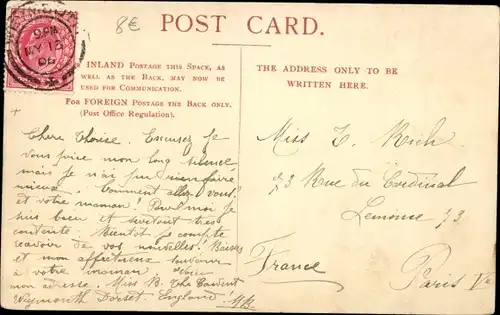 8€
POST CARD.
9 PM
MY 13
06
INLAND POSTAGE THIS SPACE, AS
WELL AS THE BACK, MAY NOW BE
USED FOR COMMUNICATION.
FOR FOREIGN POSTAGE THE BACK ONLY.
(Post Office Regulation).
THE ADDRESS ONLY TO BE
WRITTEN HERE.
Chere Excusez je
vous prie mon long silence
mais je n'ai pu rien faire
mieux. Comment allez vous?
et votre maman? Pour moi je
suis bien et surtout très
contente. Bientôt je compte
recevoir de vos nouvelles! Baisers
et mon affectueux souvenir
à votre maman Voici
mon adresse. Miss B. The Convent
Weymouth Dorset. England!
Miss Reich
73 Rue du Cardinal
Lemoine 73
Paris Ve
France